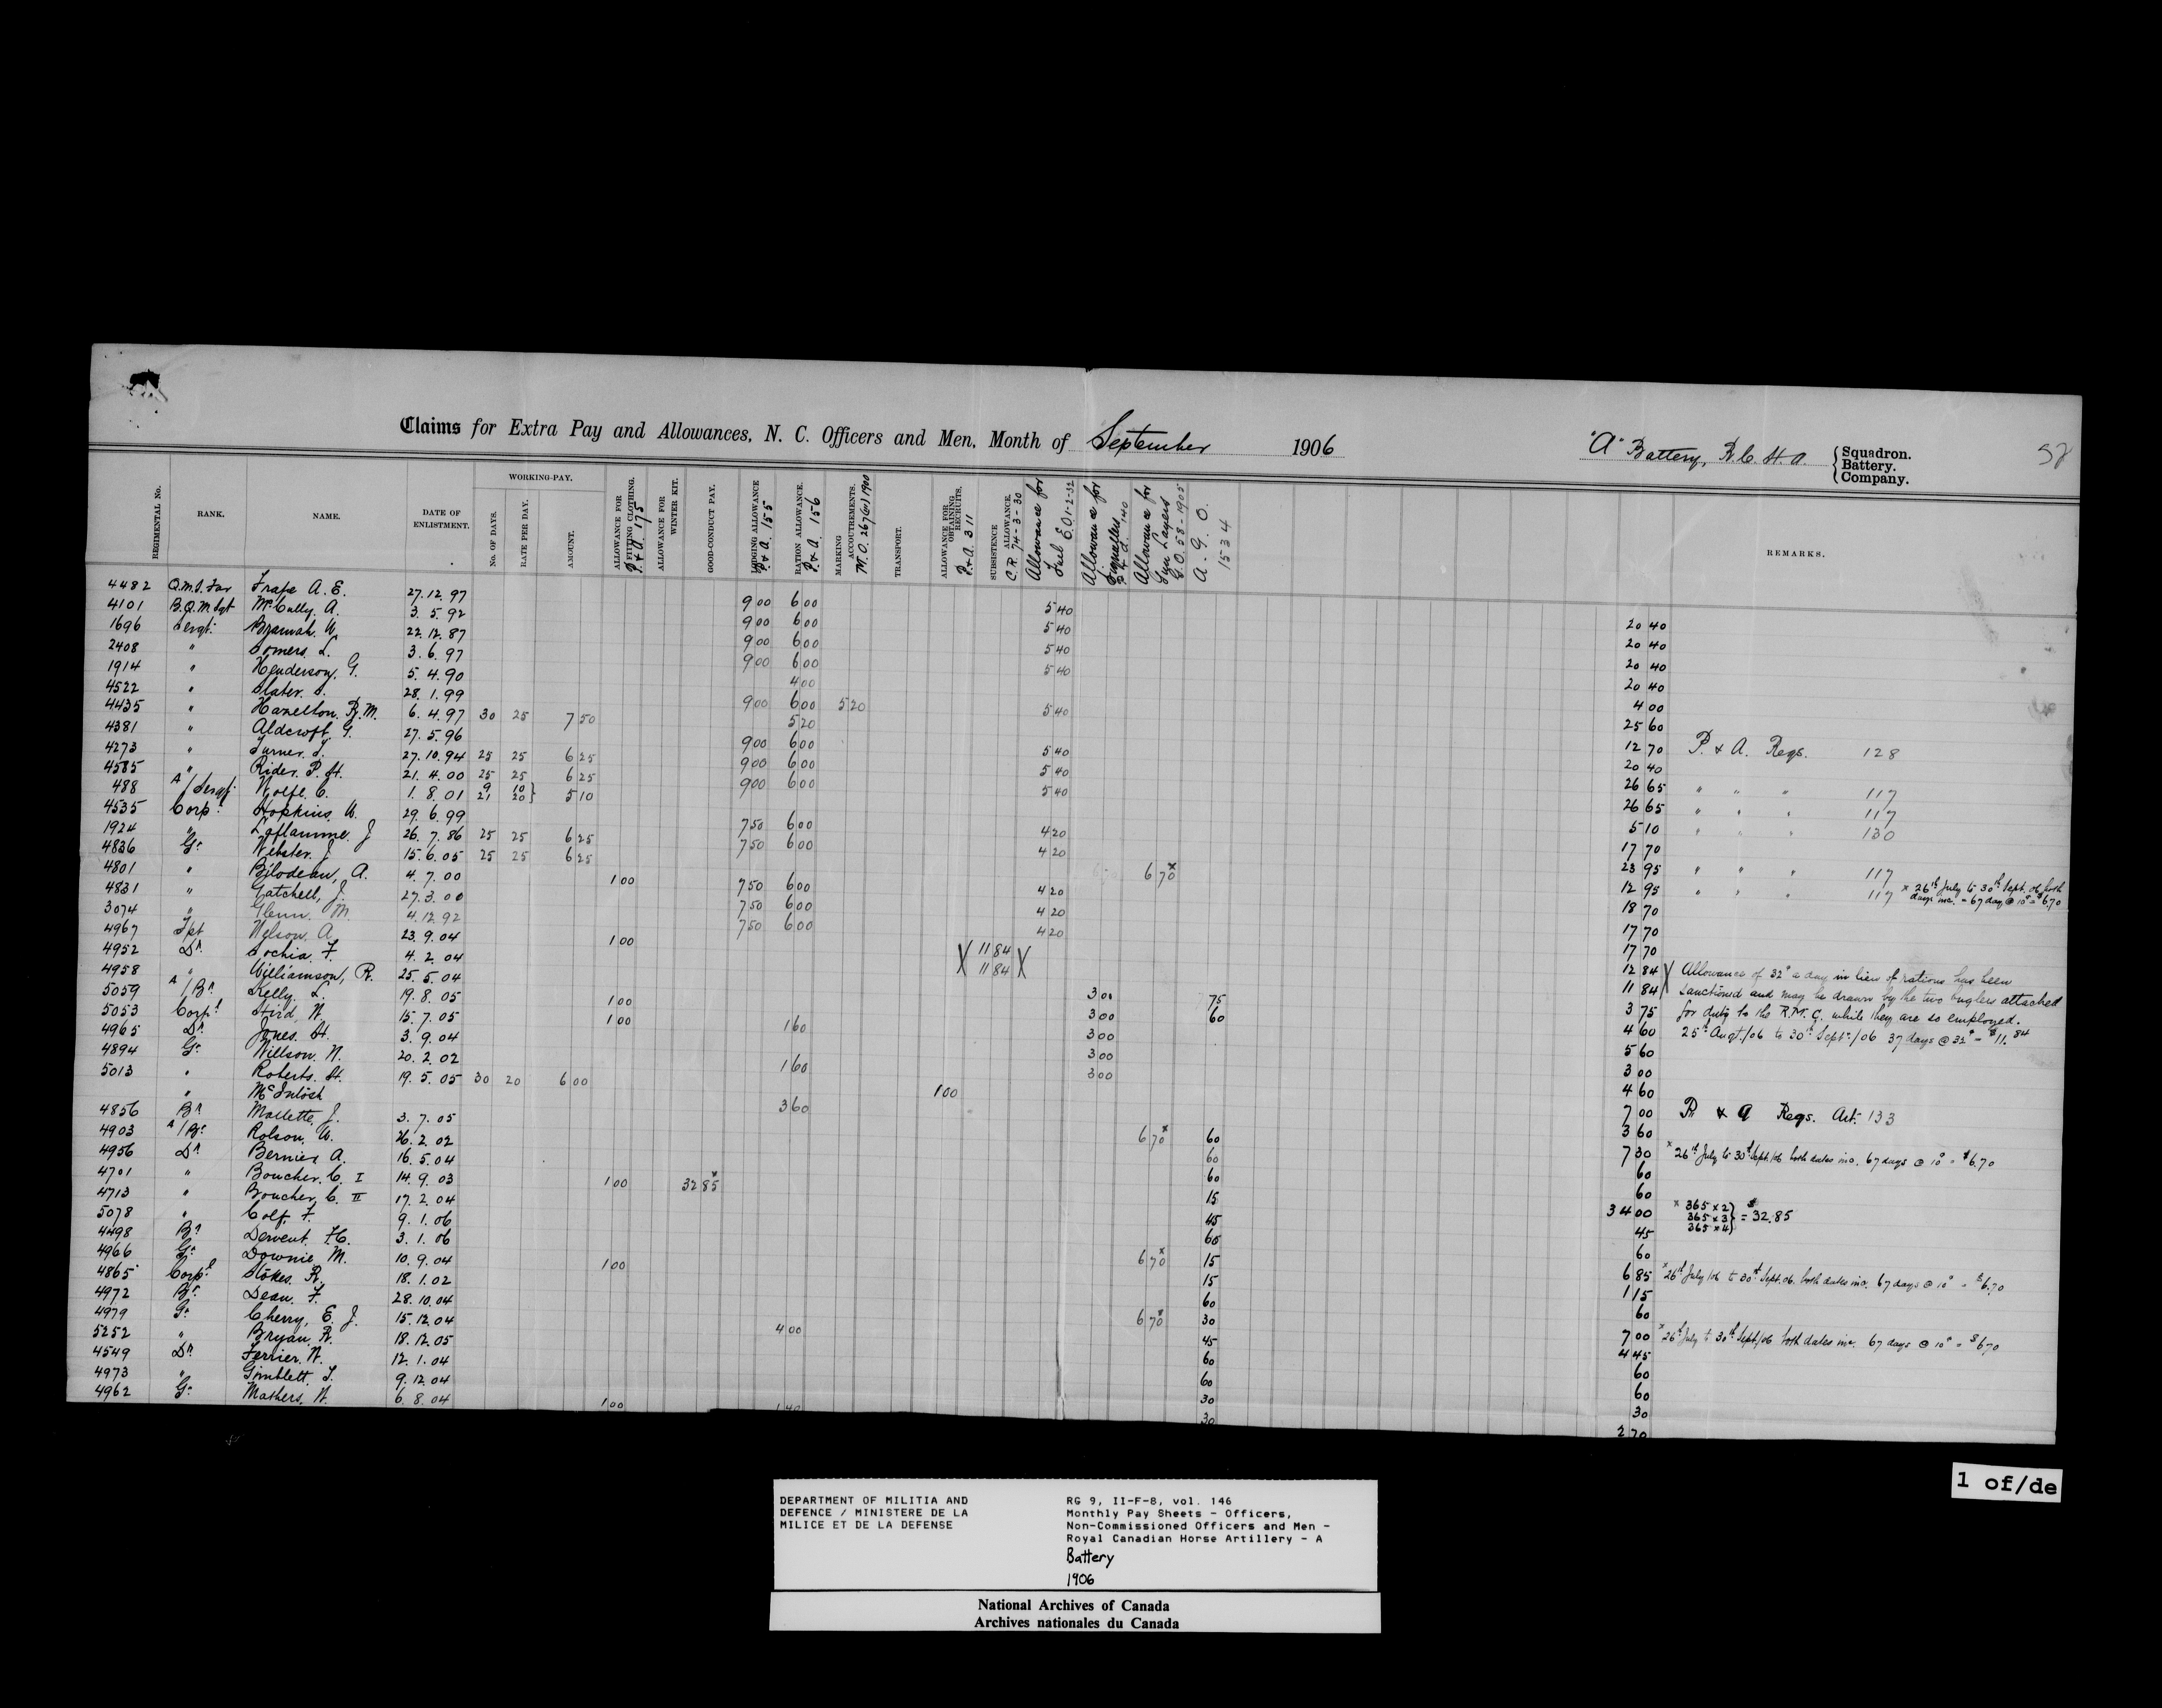 Claims for Extra Pay and Allowances, N. C. Officers and Men, Month of September 1906
"A" Battery, R.C.H.A. { Squadron. Battery. Company.
52
REGIMENTAL No. RANK. NAME. DATE OF ENLISTMENT. WORKING-PAY. No. OF DAYS. RATE PER DAY. AMOUNT. ALLOWANCE FOR FITTING CLOTHING. P. & A. 175 ALLOWANCE FOR WINTER KIT. GOOD-CONDUCT PAY. LODGING ALLOWANCE P. & A. 155 RATION ALLOWANCE. P. & A. 156 MARKING ACCOUTREMENTS. M.O. 267(41) 1900 TRANSPORT. ALLOWANCE FOR OBTAINING RECRUITS. P. & A. 311 SUBSISTENCE ALLOWANCE. C.R. 74-3-30 Allowance for Fuel E.O. 1-2-32 Allowance for Signallers P & A. 140 Allowance for Gun Layers G.O. 58-1905 A. G. O. 1534 REMARKS.
4482 Q.M.S. Far Frape A. E. 27.12.97 9 00 6 00 5 40 20 40
4101 B.Q.M.Sgt McCully. A. 3.5.92 9 00 6 00 5 40 20 40
1696 Sergt. Bramah. W. 22.12.87 9 00 6 00 5 40 20 40
2408 " Somers. L. 3.6.97 9 00 6 00 5 40 20 40
1914 " Henderson, G. 5.4.90 4 00 4 00
4522 " Slater. S. 28.1.99 9 00 6 00 5 20 5 40 25 60
4435 " Hazelton. R. M. 6.4.97 30 25 7 50 5 20 12 70 P. & A. Regs. 128
4381 " Aldcroft. G. 27.5.96 9 00 6 00 5 40 20 40
4273 " Turner. T. 27.10.94 25 25 6 25 9 00 6 00 5 40 26 65 " " " 117
4585 " Rider. P. H. 21.4.00 25 25 6 25 9 00 6 00 5 40 26 65 " " " 117
488 A/Sergt. Wolfe. C. 1.8.01 9 10 21 20 } 5 10 5 10 " " " 130
4535 Corpl. Hopkins. W. 29.6.99 7 50 6 00 4 20 17 70
1924 " Laflamme. J 26.7.86 25 25 6 25 7 50 6 00 4 20 23 95 " " " 117
4836 Gr. Webster. J 15.6.05 25 25 6 25 6 70 x 12 95 " " " 117 x 26th July to 30th Sept. 06 both days inc. = 67 days @ 10c = $6.70
4801 " Bilodeau, A. 4.7.00 1 00 7 50 6 00 4 20 18 70
4831 " Gatchell, J. 27.3.00 7 50 6 00 4 20 17 70
3074 " Glenn. M. 4.12.92 7 50 6 00 4 20 17 70
4967 Tpt Nelson. A 23.9.04 1 00 X 11 84 X 12 84 X Allowance of 32c a day in lieu of rations has been
4952 Dr. Sochia. F. 4.2.04 11 84 11 84 sanctioned and may be drawn by the two buglers attached
4958 " Williamson, R. 25.5.04 3 00 75 3 75 for duty to the R.M.C. while they are so employed.
5059 A/Br. Kelly. L. 19.8.05 1 00 3 00 60 4 60 25th Augt./06 to 30th Sept./06 37 days @ 32c = $11.84
5053 Corpl. Hird. W. 15.7.05 1 00 1 60 3 00 5 60
4965 Dr. Jones. H. 3.9.04 3 00 3 00
4894 Gr. Willson. N. 20.2.02 1 60 3 00 4 60
5013 " Roberts. H. 19.5.05 30 20 6 00 1 00 7 00 P. & A Regs. Art. 133
" McIntosh 3 60 3 60
4856 Br. Mallette, J. 3.7.05 6 70 x 60 7 30 x 26th July to 30th Sept./06 both dates inc. 67 days @ 10c = $6.70
4903 A/Br. Rolson. W. 26.2.02 60 60
4956 Dr. Bernier A. 16.5.04 60 60
4701 " Boucher. C. I 14.9.03 1 00 32 85 x 15 34 00 x 365 x 2 365 x 3 365 x 4 } = $32.85
4713 " Boucher, C. II 17.2.04 45 45
5078 " Colf. F. 9.1.06 60 60
4498 Br. Dervent. H. 3.1.06 6 70 x 15 6 85 x 26th July/06 to 30th Sept. 06. both dates inc. 67 days @ 10c = $6.70
4966 Gr. Downie. M. 10.9.04 1 00 15 1 15
4865 Corpl. Stokes. R. 18.1.02 60 60
4972 Br. Dean. F. 28.10.04 6 70 x 30 7 00 x 26th July to 30th Sept/06 both dates inc. 67 days @ 10c = $6.70
4979 Gr. Cherry, E. J. 15.12.04 4 00 45 4 45
5252 " Bryan. R. 18.12.05 60 60
4549 Dr. Ferrier. N. 12.1.04 60 60
4973 " Gimblett. T. 9.12.04 30 30
4962 Gr. Mathers. N. 6.8.04 1 00 1 40 30 2 70
1 of/de
DEPARTMENT OF MILITIA AND
DEFENCE / MINISTERE DE LA
MILICE ET DE LA DEFENSE
RG 9, II-F-8, vol. 146
Monthly Pay Sheets - Officers,
Non-Commissioned Officers and Men -
Royal Canadian Horse Artillery - A
Battery
1906
National Archives of Canada
Archives nationales du Canada